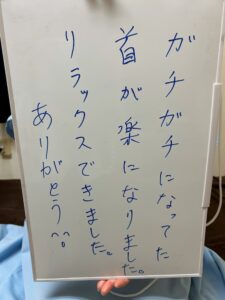 ガチガチになってた
首が楽になりました。
リラックスできました。
ありがとう!!。